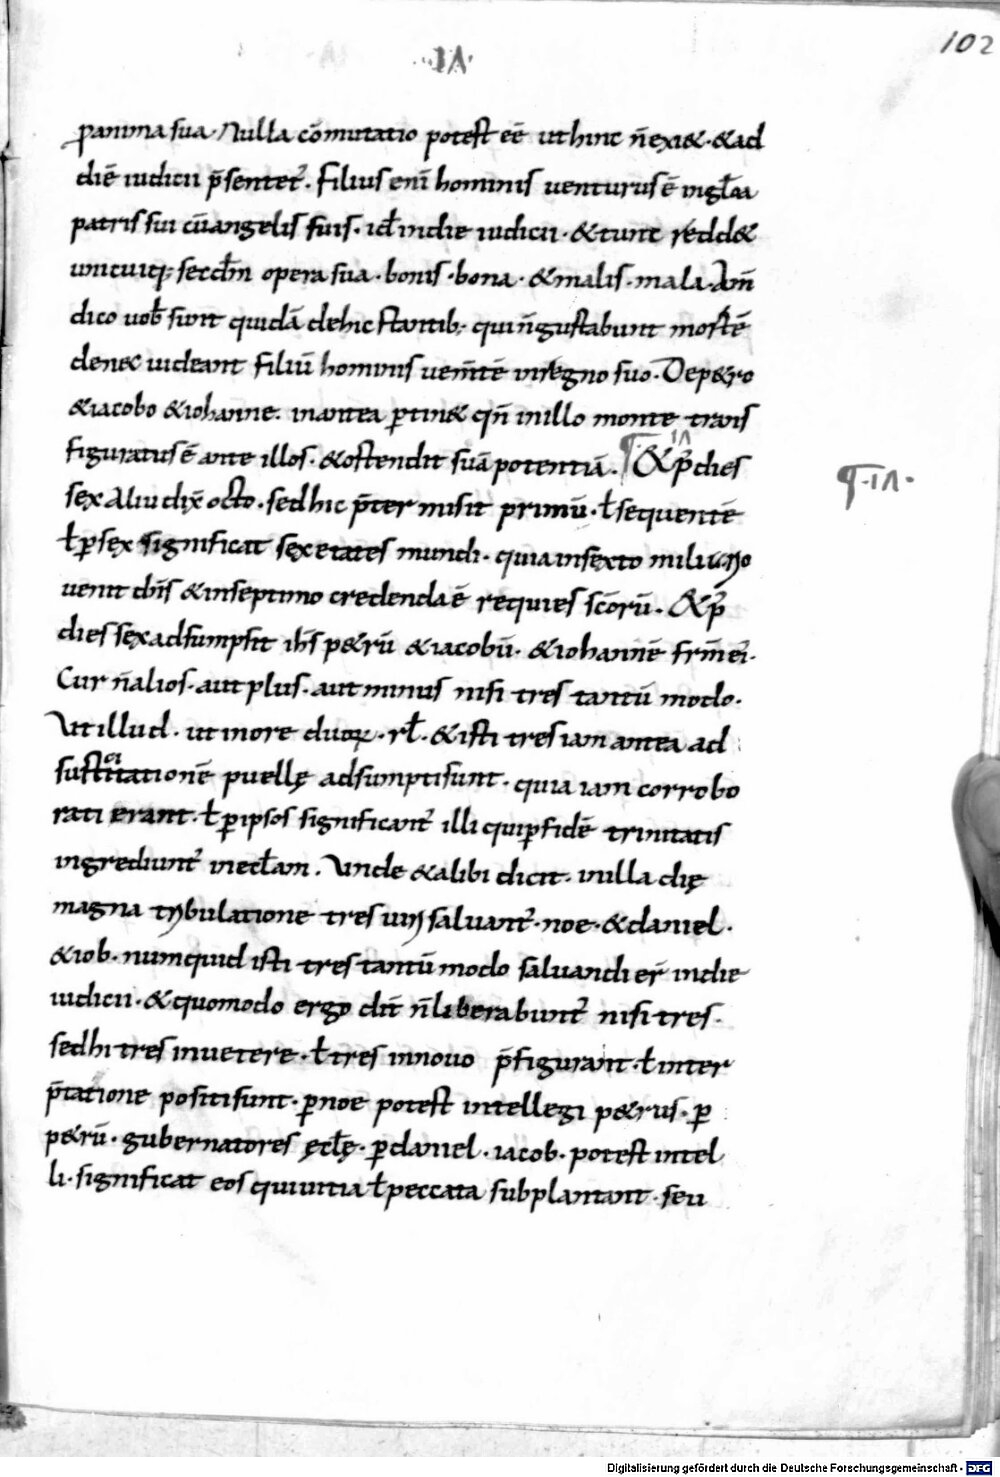 102
·IΛ·
ꝑanima sua· Nulla cōmutatio potest eē ut hinc n̄ exi&· & ad
diē iudicii p̄sentet᷑. Filius eni᷑ hominis uenturus ē in gl̄a
patris sui cū angelis suis· id ̄ in die iudicii· & tunc redd&
unicuiq; secdm̄ opera sua· bonis· bona· & malis· mala· Am̄
dico uob̄ sunt quidā de hic stantib; qui n̄ gustabunt mortē
denec uideant filiū hominis uenītē in regno suo· De p&ro
& iacobo & iohanne. in antea ꝑtin& qn̄ in illo monte trans
figuratus ē ante illos. & ostendit suā potentiā. ¶ IΛ & p᷑ dies
sex Aliu dix̄ octo. sed hic p̄termisit primū· ł sequentē
ł ꝑ sex significat sex etates mundi. quia in sexto miliario
uenit dn̄s & in septimo credenda ē requies sc̄orū. & p᷑
¶·IΛ·
dies sex adsumpsit ih̄s p&rū & iacobū· & iohannē frm̄ ei᷑·
Cur n̄ alios· aut plus· aut minus nisi tres tantū modo·
Ut illud. ut in ore duoꝝ· rł· & isti tres iam antea ad
sustitationē puellę adsumpti sunt· quia iam corrobo
rati erant· ł ꝑ ipsos significant᷑ illi qui ꝑ fidē trinitatis
ingrediunt᷑ in ecł̄am. Unde & alibi dicit. in illa die
magna tribulatione tres uiri saluant᷑· noe· & daniel·
& iob· numquid isti tres tantū modo saluandi er̄ in die
iudicii· & quomodo ergo dn̄t n̄ liberabunt᷑ nisi tres·
sed hi tres in uetere· ł tres in nouo p̄figurant· ł inter
p̄tatione positi sunt· ꝑ noe potest intellegi p&rus· ꝑ
p&rū· gubernatores ęcł̄ę· ꝑ daniel· iacob· potest intel
li· significat eos qui uitia ł peccata subplantant· seu
Digitalisierung gefördert durch die Deutsche Forschungsgemeinschaft - DFG